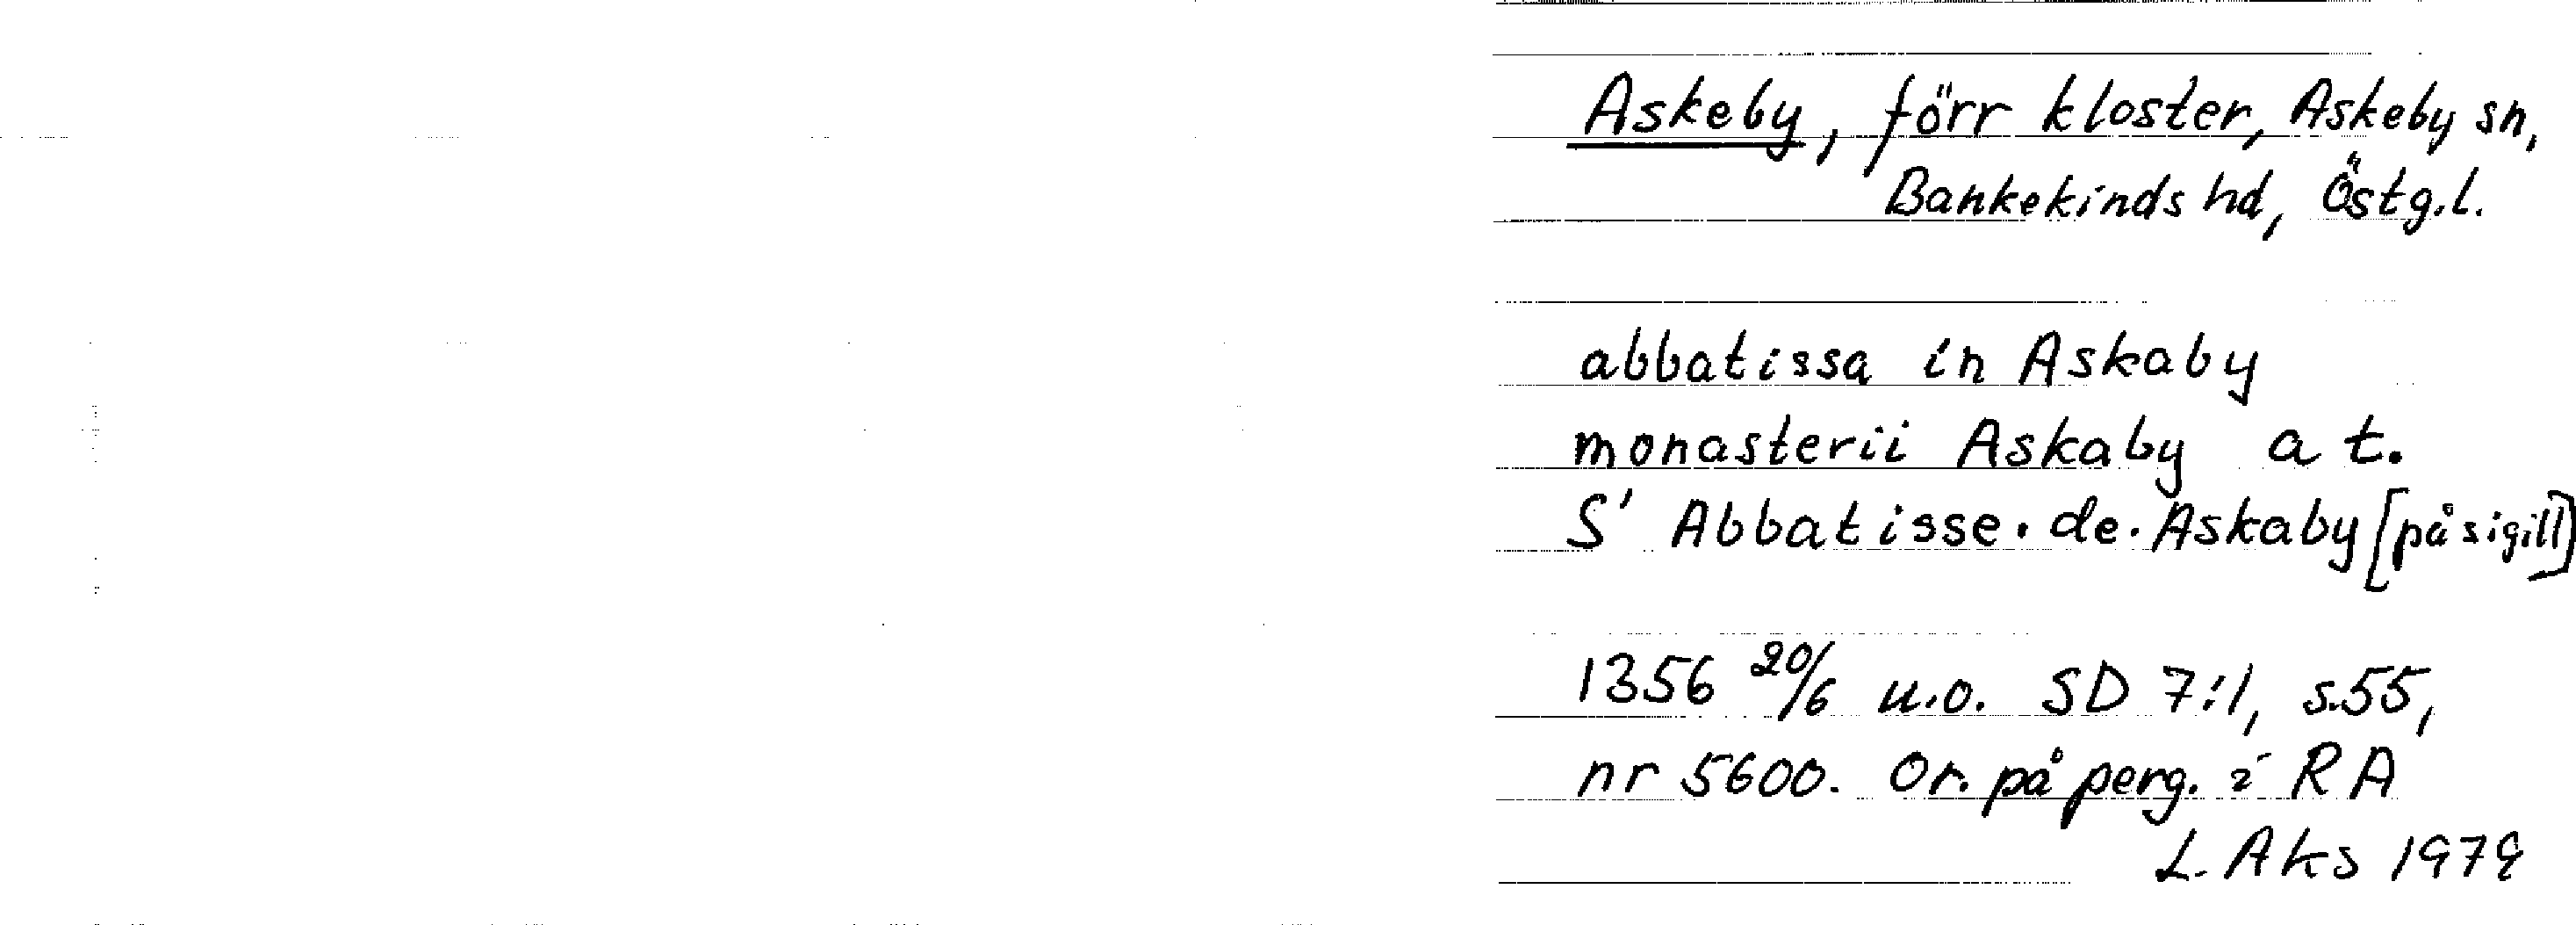 Askeby, förr kloster, Askeby sn,
Bankekinds hd, Östg.l.
abbatissa in Askaby
monasterii Askaby a t.
S' Abbatisse. de. Askaby [på sigill]
1356 20/6 u.o. SD 7:1, s.55,
nr 5600. Or. på perg. i RA
L. Aks 1979